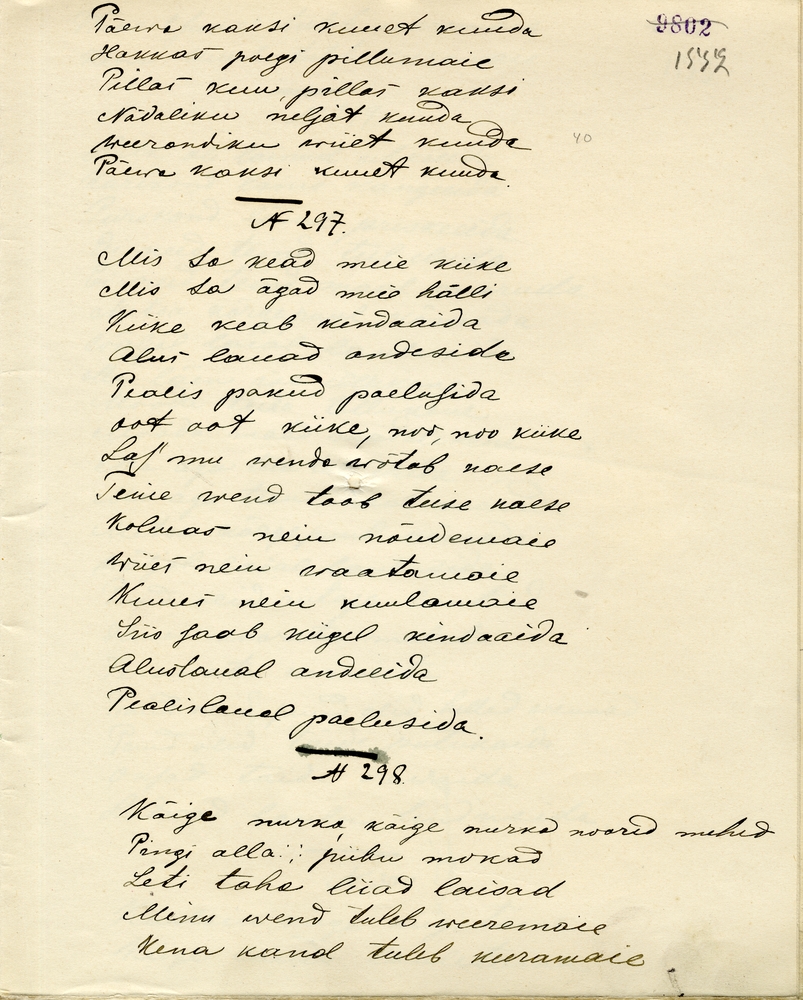 9802
1552
Päewa kaksi kuuet kuuda
Hakkas poegi pillumaie
Pillas kuu, pillas kaksi
Nädaliku neljät kuuda
weerandiku wiiet kuuda
40
Päewa kaksi kuuet kuuda.
N 297.
Mis sa kead meie kiike
Mis sa ägad meie hälli
Kiike keab kindaaida
Alus lauad andesida
Pealis pakud paelusida
oot oot kiike, noo, noo kiike
Las' mu wenda wõtab naese
Teine wend toob teise naese
Kolmas nein nõudemaie
wiies nein waatamaie
Kuues nein kuulamaie
Siis saab kiigel kindaaida
Aluslaual andeeida
Pealislaual paelusida.
N 298.
Käige nurka, käige nurka noored mehed
Pingi alla :: piibu mokad
Leti taha liiad laisad
Minu wend tuleb weeremaie
Kena kand tuleb keeramaie